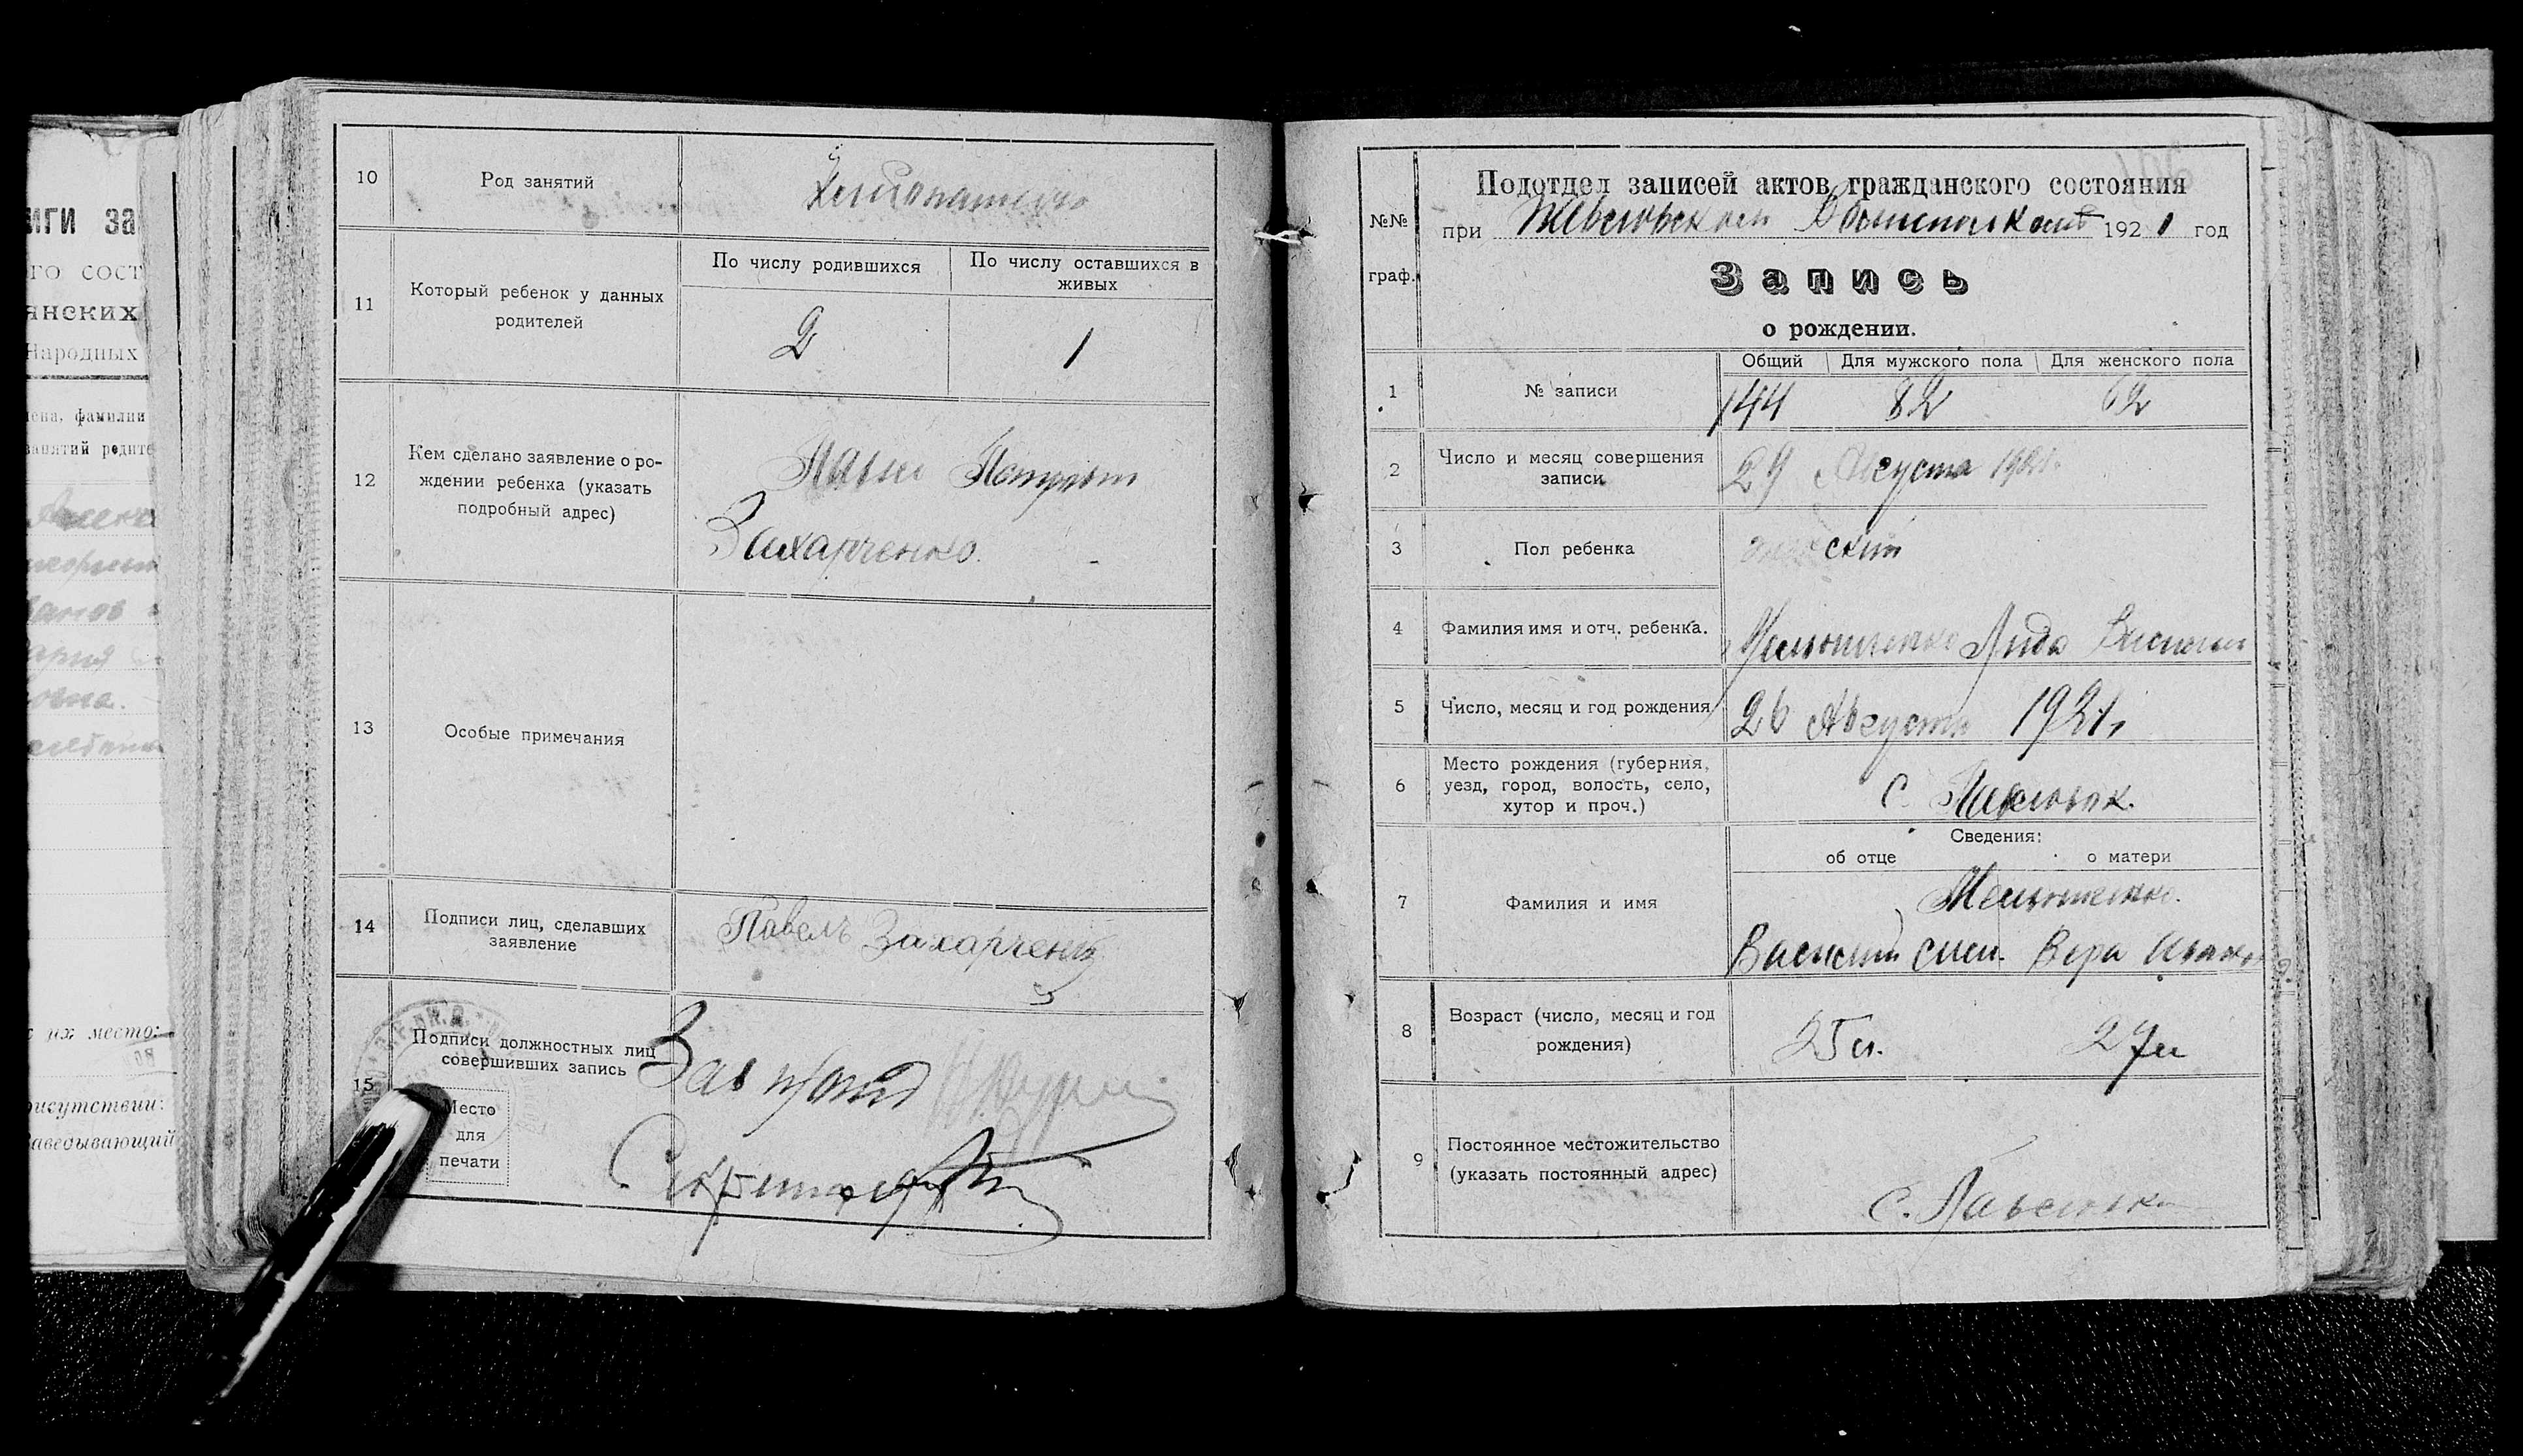 иги за
го сост
янских
Народных
мена, фамилии
занятий родите
их место:
рисутствии:
аведывающий
10 Род занятий Хлебопашество
11 Который ребенок у данных родителей
По числу родившихся По числу оставшихся в живых
2 1
12 Кем сделано заявление о ро-
ждении ребенка (указать
подробный адрес)
Павел Петрович
Захарченко.
13 Особые примечания
14 Подписи лиц, сделавших
заявление
Павелъ Захарченко
15 Подписи должностных лиц
совершивших запись
Зав
Место
для
печати
Подотдел записей актов гражданского состояния
№№
граф.
при 1921 год
Запись
о рождении.
Общий Для мужского пола Для женского пола
1 № записи 144 82 62
2 Число и месяц совершения
записи
29 Августа 1921.
3 Пол ребенка
4 Фамилия имя и отч. ребенка. Лида
5 Число, месяц и год рождения 26 Августа 1921г
6 Место рождения (губерния,
уезд, город, волость, село,
хутор и проч.)
с.
Сведения:
об отце о матери
7 Фамилия и имя
Василий Вера
8 Возраст (число, месяц и год
рождения)
25 л. 27 л
9 Постоянное местожительство
(указать постоянный адрес)
с. Павловка